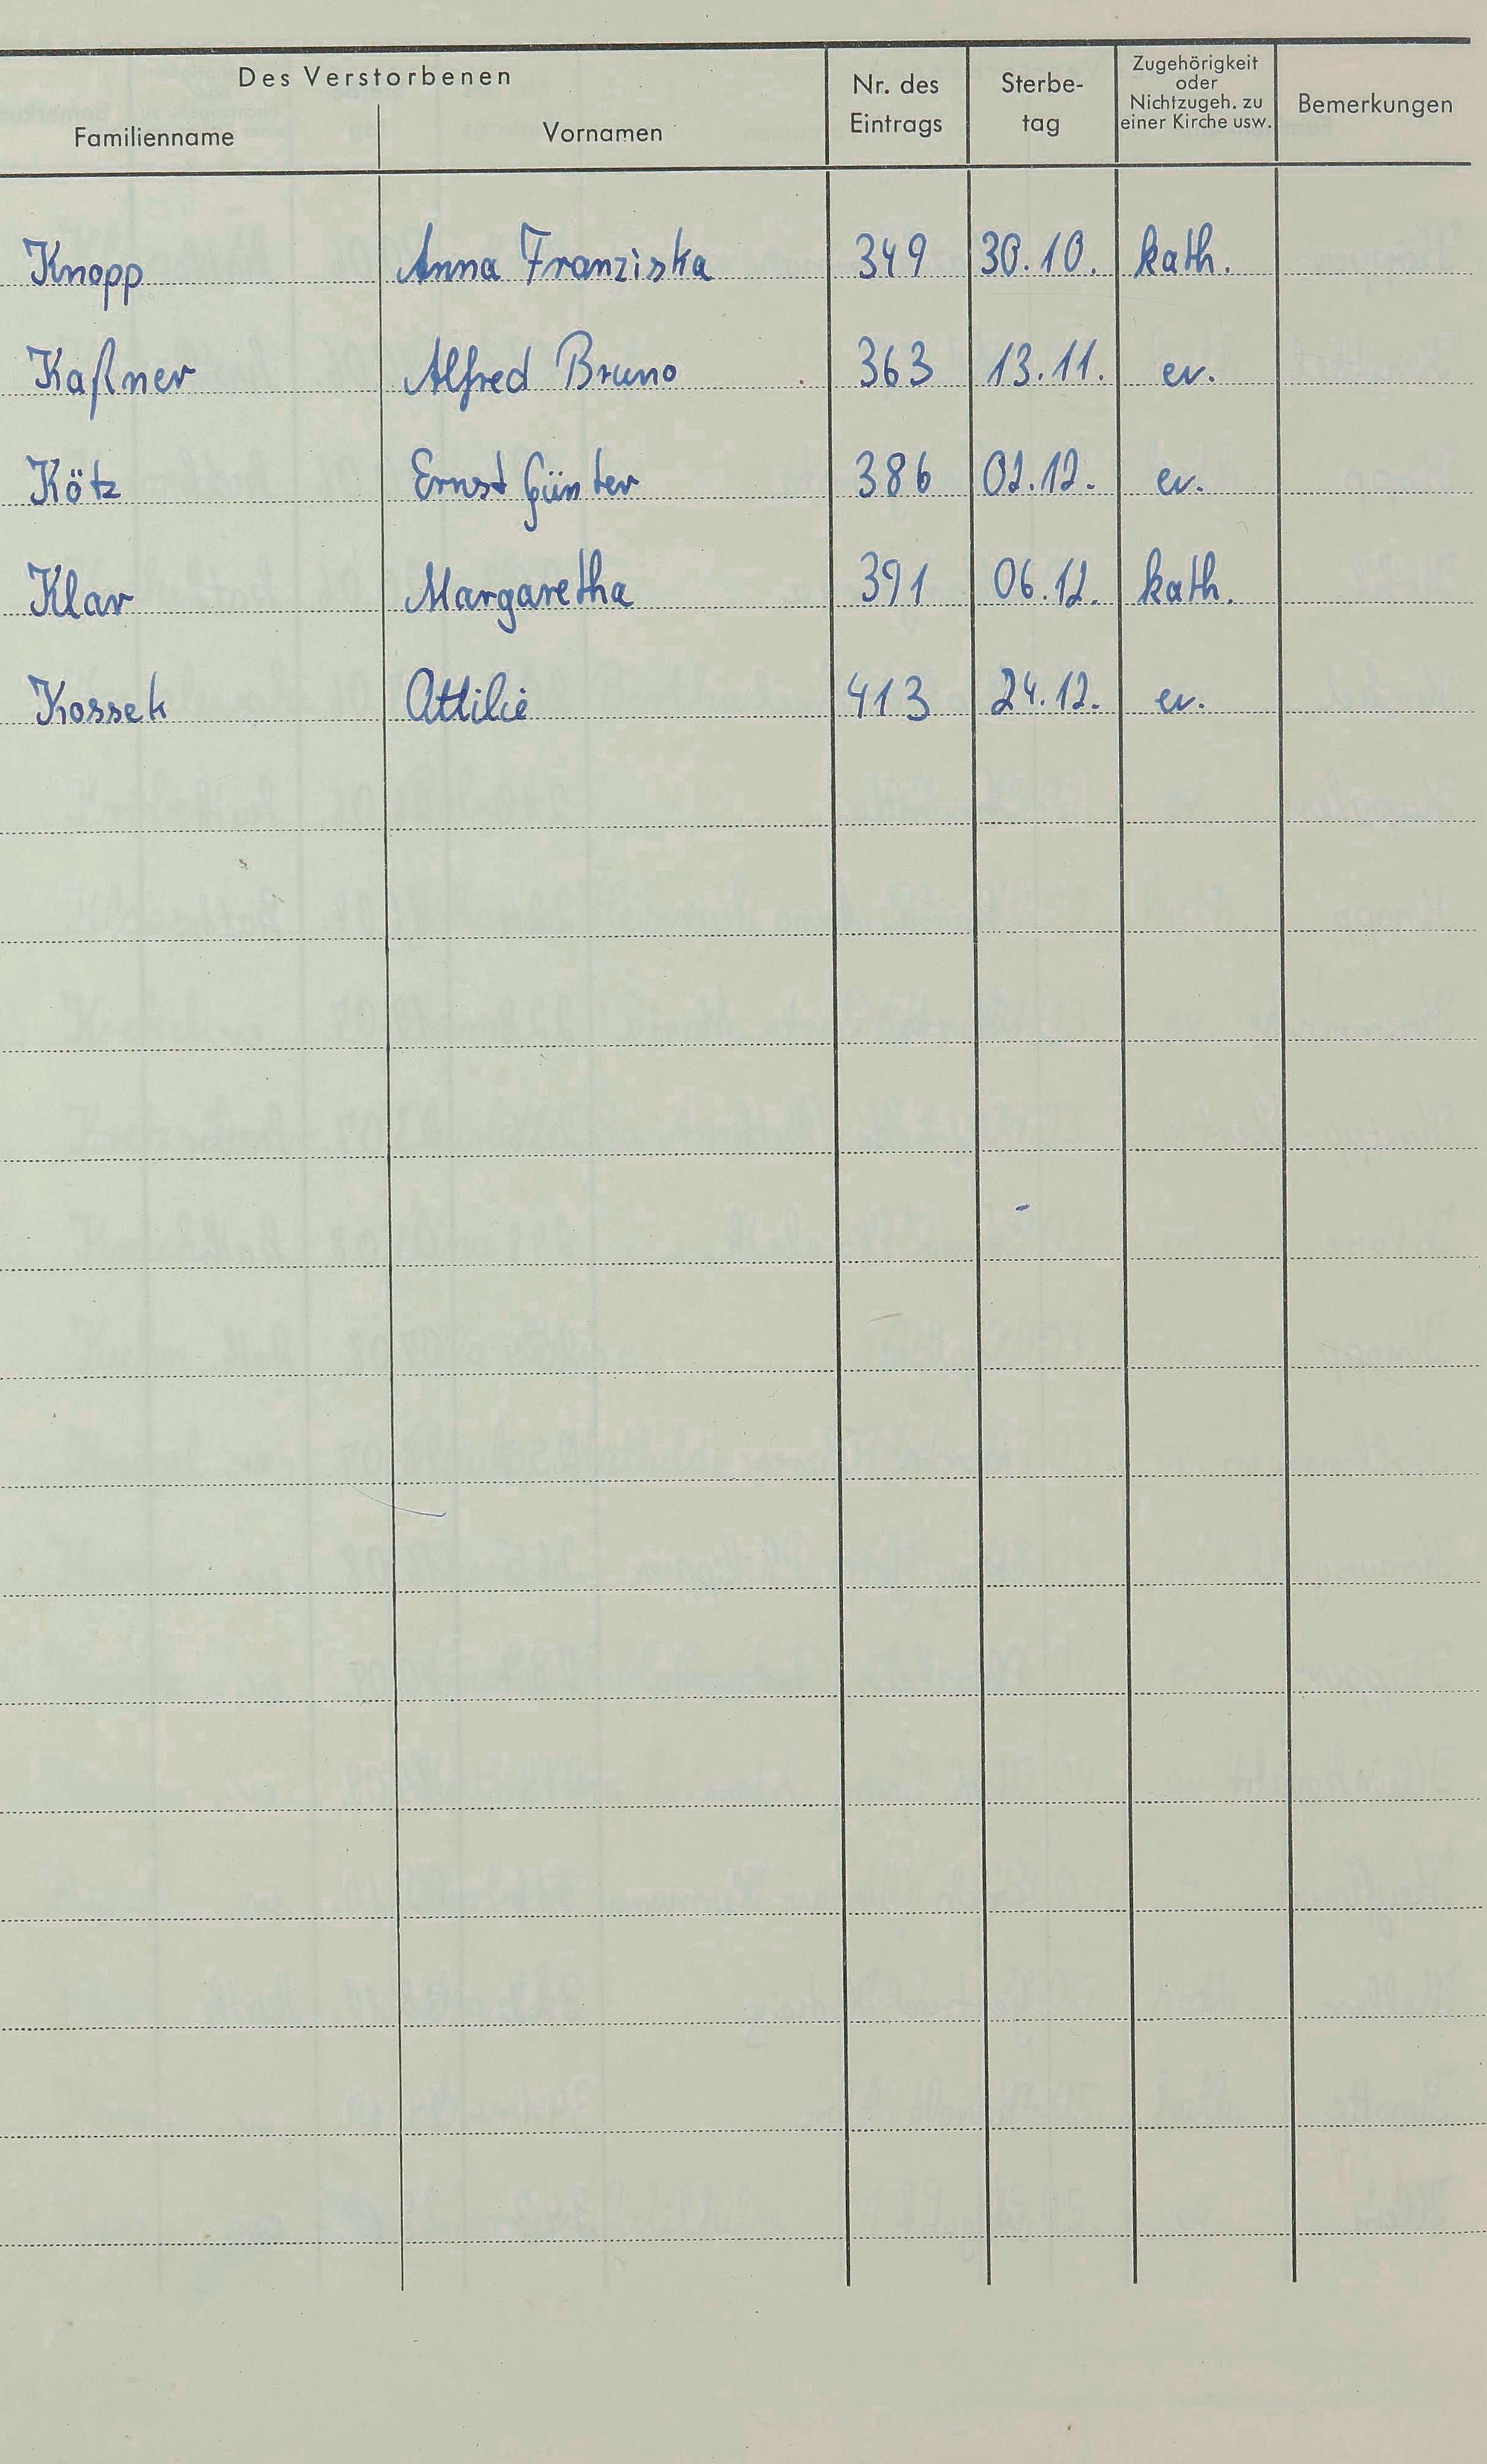 Des Verstorbenen
Familienname Vornamen Nr. des Eintrags Sterbe-tag Zugehörigkeit oder Nichtzugeh. zu einer Kirche usw. Bemerkungen
Knopp Anna Franziska 349 30.10. kath.
Kaßner Alfred Bruno 363 13.11. ev.
Kötz Ernst Günter 386 02.12. ev.
Klar Margaretha 391 06.12. kath.
Kossek Ottilie 413 24.12. ev.